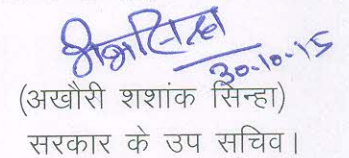 30.10.15
(अखौरी शशांक सिन्हा)
सरकार के उप सचिव।